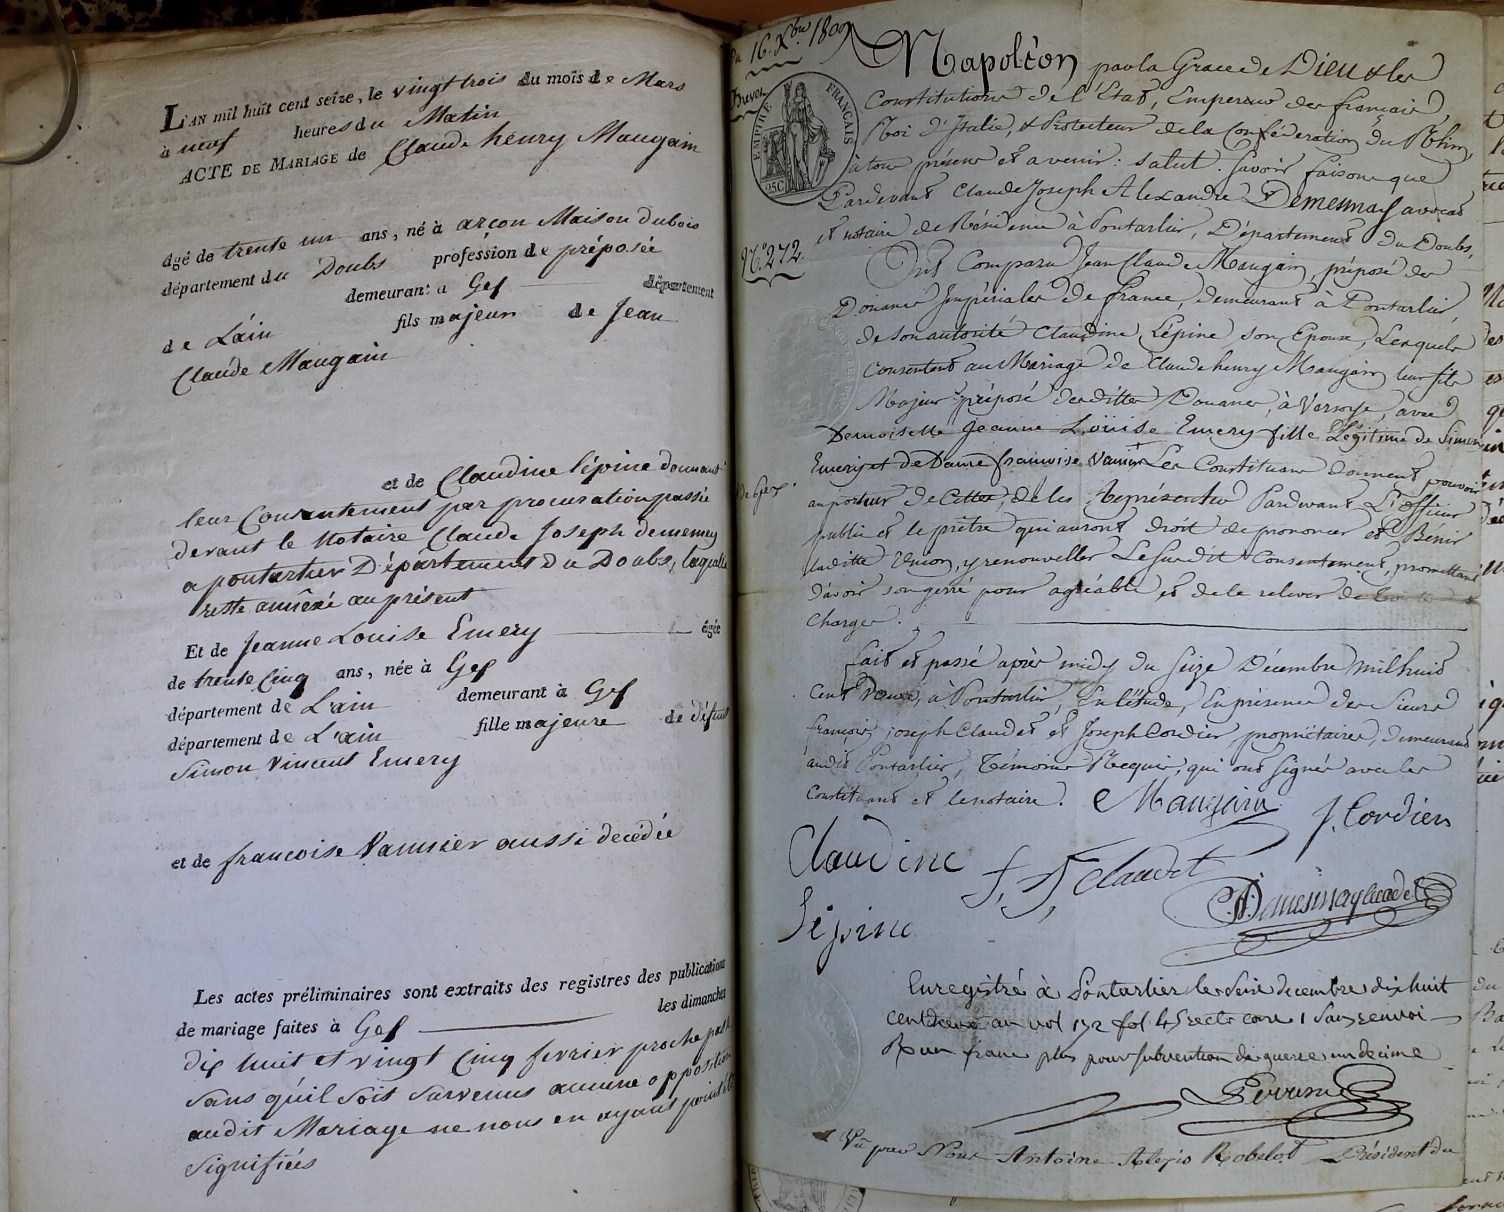 L'AN mil huit cent seize, le vingt trois du mois de Mars
à neuf heures du Matin
ACTE DE MARIAGE de Claude henry Maugain
âgé de trente un ans, né à arçon Maison dubois
département du Doubs profession de préposé
demeurant a Gex département
de L'ain fils majeur de Jean
Claude Maugain
et de Claudine lépine donnant
leur Consentement par procuration passée
devant le Notaire Claude Joseph demesmay
a pontarlier Département du Doubs, laquelle
reste annéxé au présent
Et de Jeanne Louise Emery âgée
de trente Cinq ans, née à Gex
département de L'ain demeurant à Gex
département de L'ain fille majeure de défunt
Simon Vincent Emery
et de francoise Vannier aussi decédée
Les actes préliminaires sont extraits des registres des publications
de mariage faites à Gex les dimanches
dix huit et vingt Cinq fevrier proche passé
sans qu'il soit survenus aucune opposition
audit Mariage ne nous en ayant point été
signifiées
Du 16. Xbre 1809
Brevet
EMPIRE FRANÇAIS
25C
N.° 272.
Napoléon par la Grace de Dieu & les
Constitutions de l'Etat, Empereur des français,
Roi d'Italie, & Protecteur de la Confédération du Rhin,
à tous présens et avenir: salut. Savoir faisons que
Pardevant Claude Joseph Alexandre Demesmay avocat
et notaire de Résidence à Pontarlier, Département du Doubs,
Ont Comparu Jean Claude Maugain, préposé des
Douanes Impériales de france, demeurant à Pontarlier,
de son autorité Claudine Lépine son Epouse, Lesquels
Consentent au Mariage de Claude henry Maugain leur fils
Majeur préposé desdittes Douanes, à Versoye, avec
Demoiselle Jeanne Loüise Emery fille Légitime de Simon
Emery et de Dame françoise Vannier Les Constituans donnent pouvoir
de Gex.
au porteur de Cette, de les Représenter Pardevant L'officier
public et le prêtre qui auront droit de prononcer et Bénir
laditte Union, y renouveller Le susdit Consentement, promettant
d'avoir son gerré pour agréable et de le relever de
Charges.
fait et passé après midy du seize Décembre mil huit
cent, à Pontarlier, En l'étude, En présence des Sieurs
françois joseph Claudet et Joseph Cordier, propriétaires, demeurans
audit Pontarlier, Témoins Requis, qui ont signés avec les
Constituans et le notaire. Maugain
J. Cordier
Claudine
f. J. Claudet
Demesmay
lépine
Enregistré à Pontarlier le seize decembre dix huit
cent neuf au vol 172 fol 45 recto case 1 Sans renvoi
R un franc plus pour subvention de guerre un decime
Vû par Nous Antoine Alexis Robelot Président du